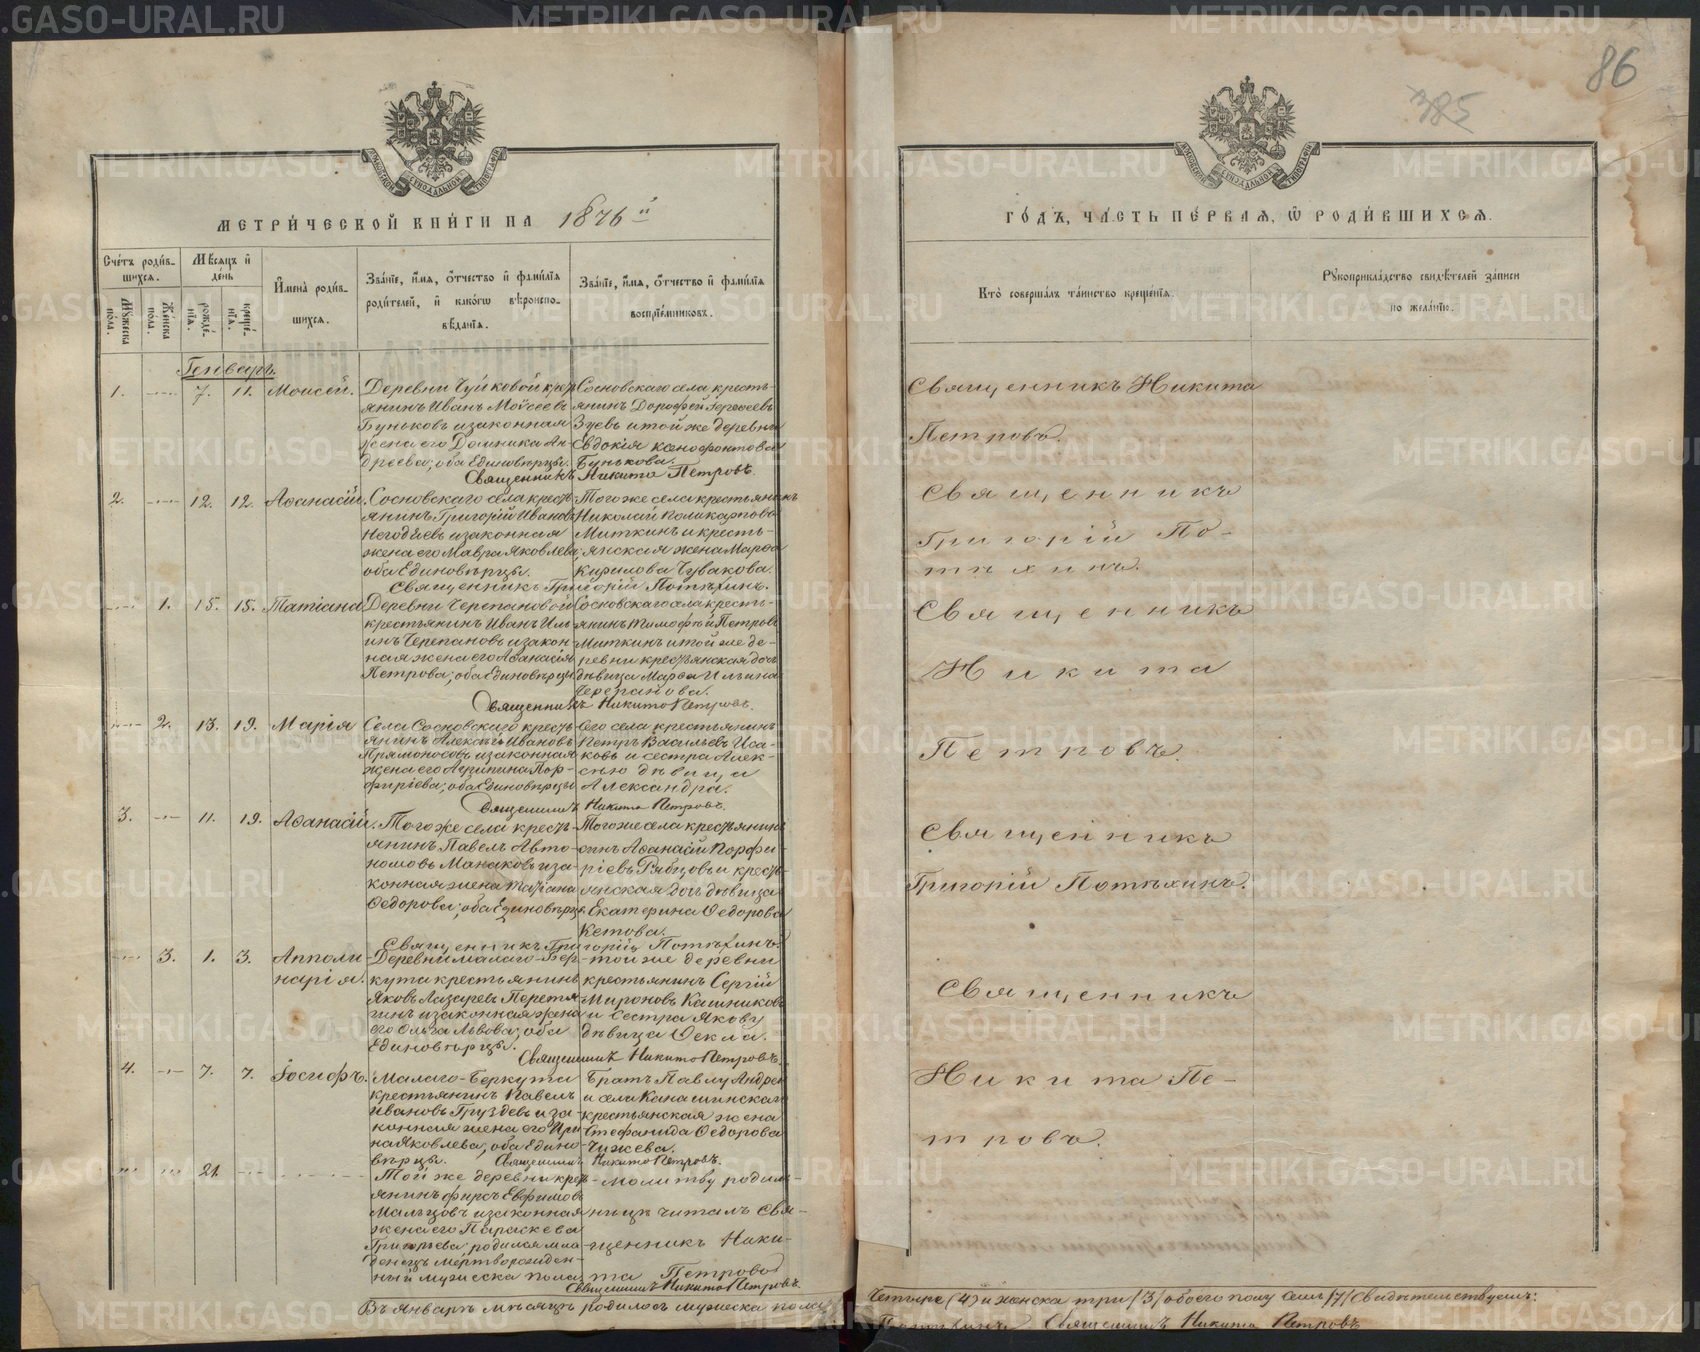 86
385
МЕТРИ́ЧЕСКОЙ КНИ́ГИ НА 1876 й
ГО́ДЪ, ЧА́СТЬ ПЕ́РВАЯ, Ѿ РОДИ́ВШИХСЯ.
Сче́тъ роди́в-
шихся.
Мѣ́сяцъ и
де́нь
Мꙋ́жеска по́ла.
Же́нска по́ла.
рожде́-
нїя.
креще́-
нїя.
И҆мена̀ роди́в-
шихся.
Зва́нїе, и҆́мя, ѻ҆́тчество и҆ фами́лїя
роди́телей, и҆ како́гѡ вѣроиспо-
вѣ́данїя.
Зва́нїе, и҆́мя, ѻ҆́тчество и҆ фами́лїя
воспрїе́мниковъ.
Кто̀ соверша́лъ та́инство креще́нїя.
Рꙋкоприкла́дство свидѣ́телей за́писи
по жела́нїю.
Генварь.
1. 7. 11. Моисей.
Деревни Чуйковой кре-
янинъ Иванъ Моѵсеевъ
Буньковъ и законная
жена его Домника Ан-
дреева, оба Единовѣрцы.
Сосновскаго села кресть-
янинъ Дорофей
Зуевъ и той же деревни
Евдокія Ксенофонтова
Бунькова.
Священникъ Никита Петровъ.
Священникъ Никита
Петровъ.
2. 12. 12. Аѳанасій.
Сосновскаго села кресть-
янинъ Григорій Ивановъ
Негодяевъ и законная
жена его Мавра Яковлева,
оба Единовѣрцы.
Того же села крестьянинъ
Николай Поликарповъ
Миткинъ и кресть-
янская жена Марѳа
Кирилова Чувакова.
Священникъ Григорій Потѣхинъ.
Священникъ
Григорій По-
тѣхинъ.
1. 15. 15. Татіана
Деревни Черепановой
крестьянинъ Иванъ Иль-
инъ Черепановъ и закон-
ная жена его Аѳанасія
Петрова, оба Единовѣрцы
Сосновскаго села кресть-
янинъ Тимофей Петровъ
Миткинъ и той же де-
ревни крестьянская дочь
дѣвица Марѳа Ильина
Черепанова.
Священникъ Никита Петровъ.
Священникъ
Никита
Петровъ.
2. 13. 19. Марія
Села Сосновскаго кресть-
янинъ Алексѣй Ивановъ
Прямоносовъ и законная
жена его Агрипина Пор-
фиріева, оба Единовѣрцы
Его села крестьянинъ
Петръ Васильевъ Иса-
ковъ и сестра Алек-
сѣю дѣвица
Александра.
Священникъ Никита Петровъ.
3. 11. 19. Аѳанасій.
Того же села кресть-
янинъ Павелъ Авто-
номовъ Манаковъ и за-
конная жена Татіана
Ѳедорова, оба Единовѣрцы.
Того же села крестьянинъ
Аѳанасій Порфи-
ріевъ Рябцовъ и кресть-
янская дочь дѣвица
Екатерина Ѳедорова
Кетова.
Священникъ Григорій Потѣхинъ.
Священникъ
Григорій Потѣхинъ.
3. 1. 3. Апполи
нарія.
Деревни Малаго-Бер-
кута крестьянинъ
Яковъ Лазаревъ Перетя-
гинъ и законная жена
его Ольга Львова, оба
Единовѣрцы.
той же деревни
крестьянинъ Сергій
Мироновъ Кашниковъ
и сестра Якову
дѣвица Ѳекла.
Священникъ Никита Петровъ.
Священникъ
4. 7. 7. Іосифъ.
Малаго-Беркута
крестьянинъ Павелъ
Ивановъ Груздевъ и за-
конная жена его Ири-
на Яковлева, оба Едино-
вѣрцы.
Братъ Павлу Андрей
и села Канашинскаго
крестьянская жена
Стефанида Ѳедорова
Чижева.
Священникъ Никита Петровъ.
Никита Пе-
тровъ.
21.
Той же деревни крес-
янинъ Фирсъ Евфимовъ
Мальцовъ и законная
жена его Параскева
Григорьева, родился мла-
денецъ мертворожден-
ный мужеска пола.
молитву родиль-
ницѣ читалъ Свя-
щенникъ Ники-
та Петровъ
Священникъ Никита Петровъ.
Въ Январѣ мѣсяцѣ родилось мужеска пола
Четыре (4) и женска три (3) обоего полу семь (7) свидѣтельствуемъ:
Потѣхинъ Священникъ Никита Петровъ